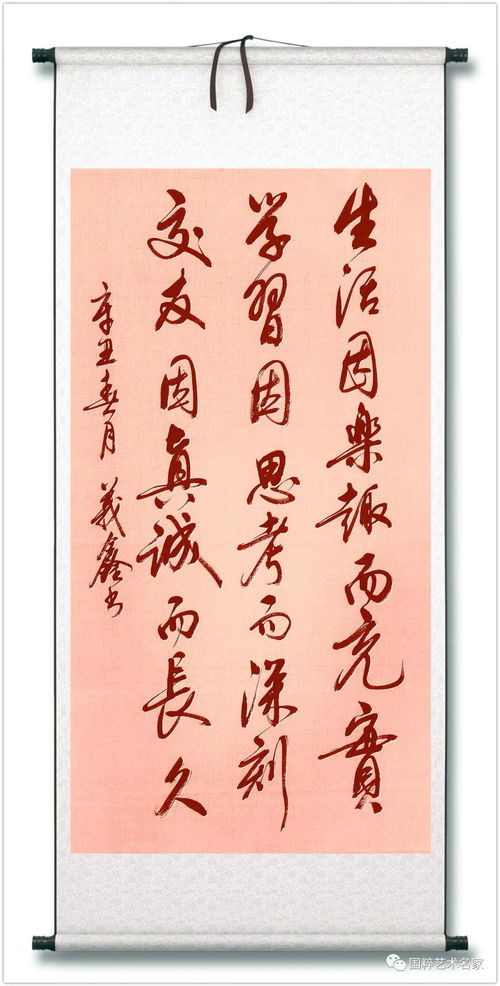 生活因樂趣而充實
学習因思考而深刻
交友因真誠而長久
辛丑春月 義鑫书
国粹艺术名家